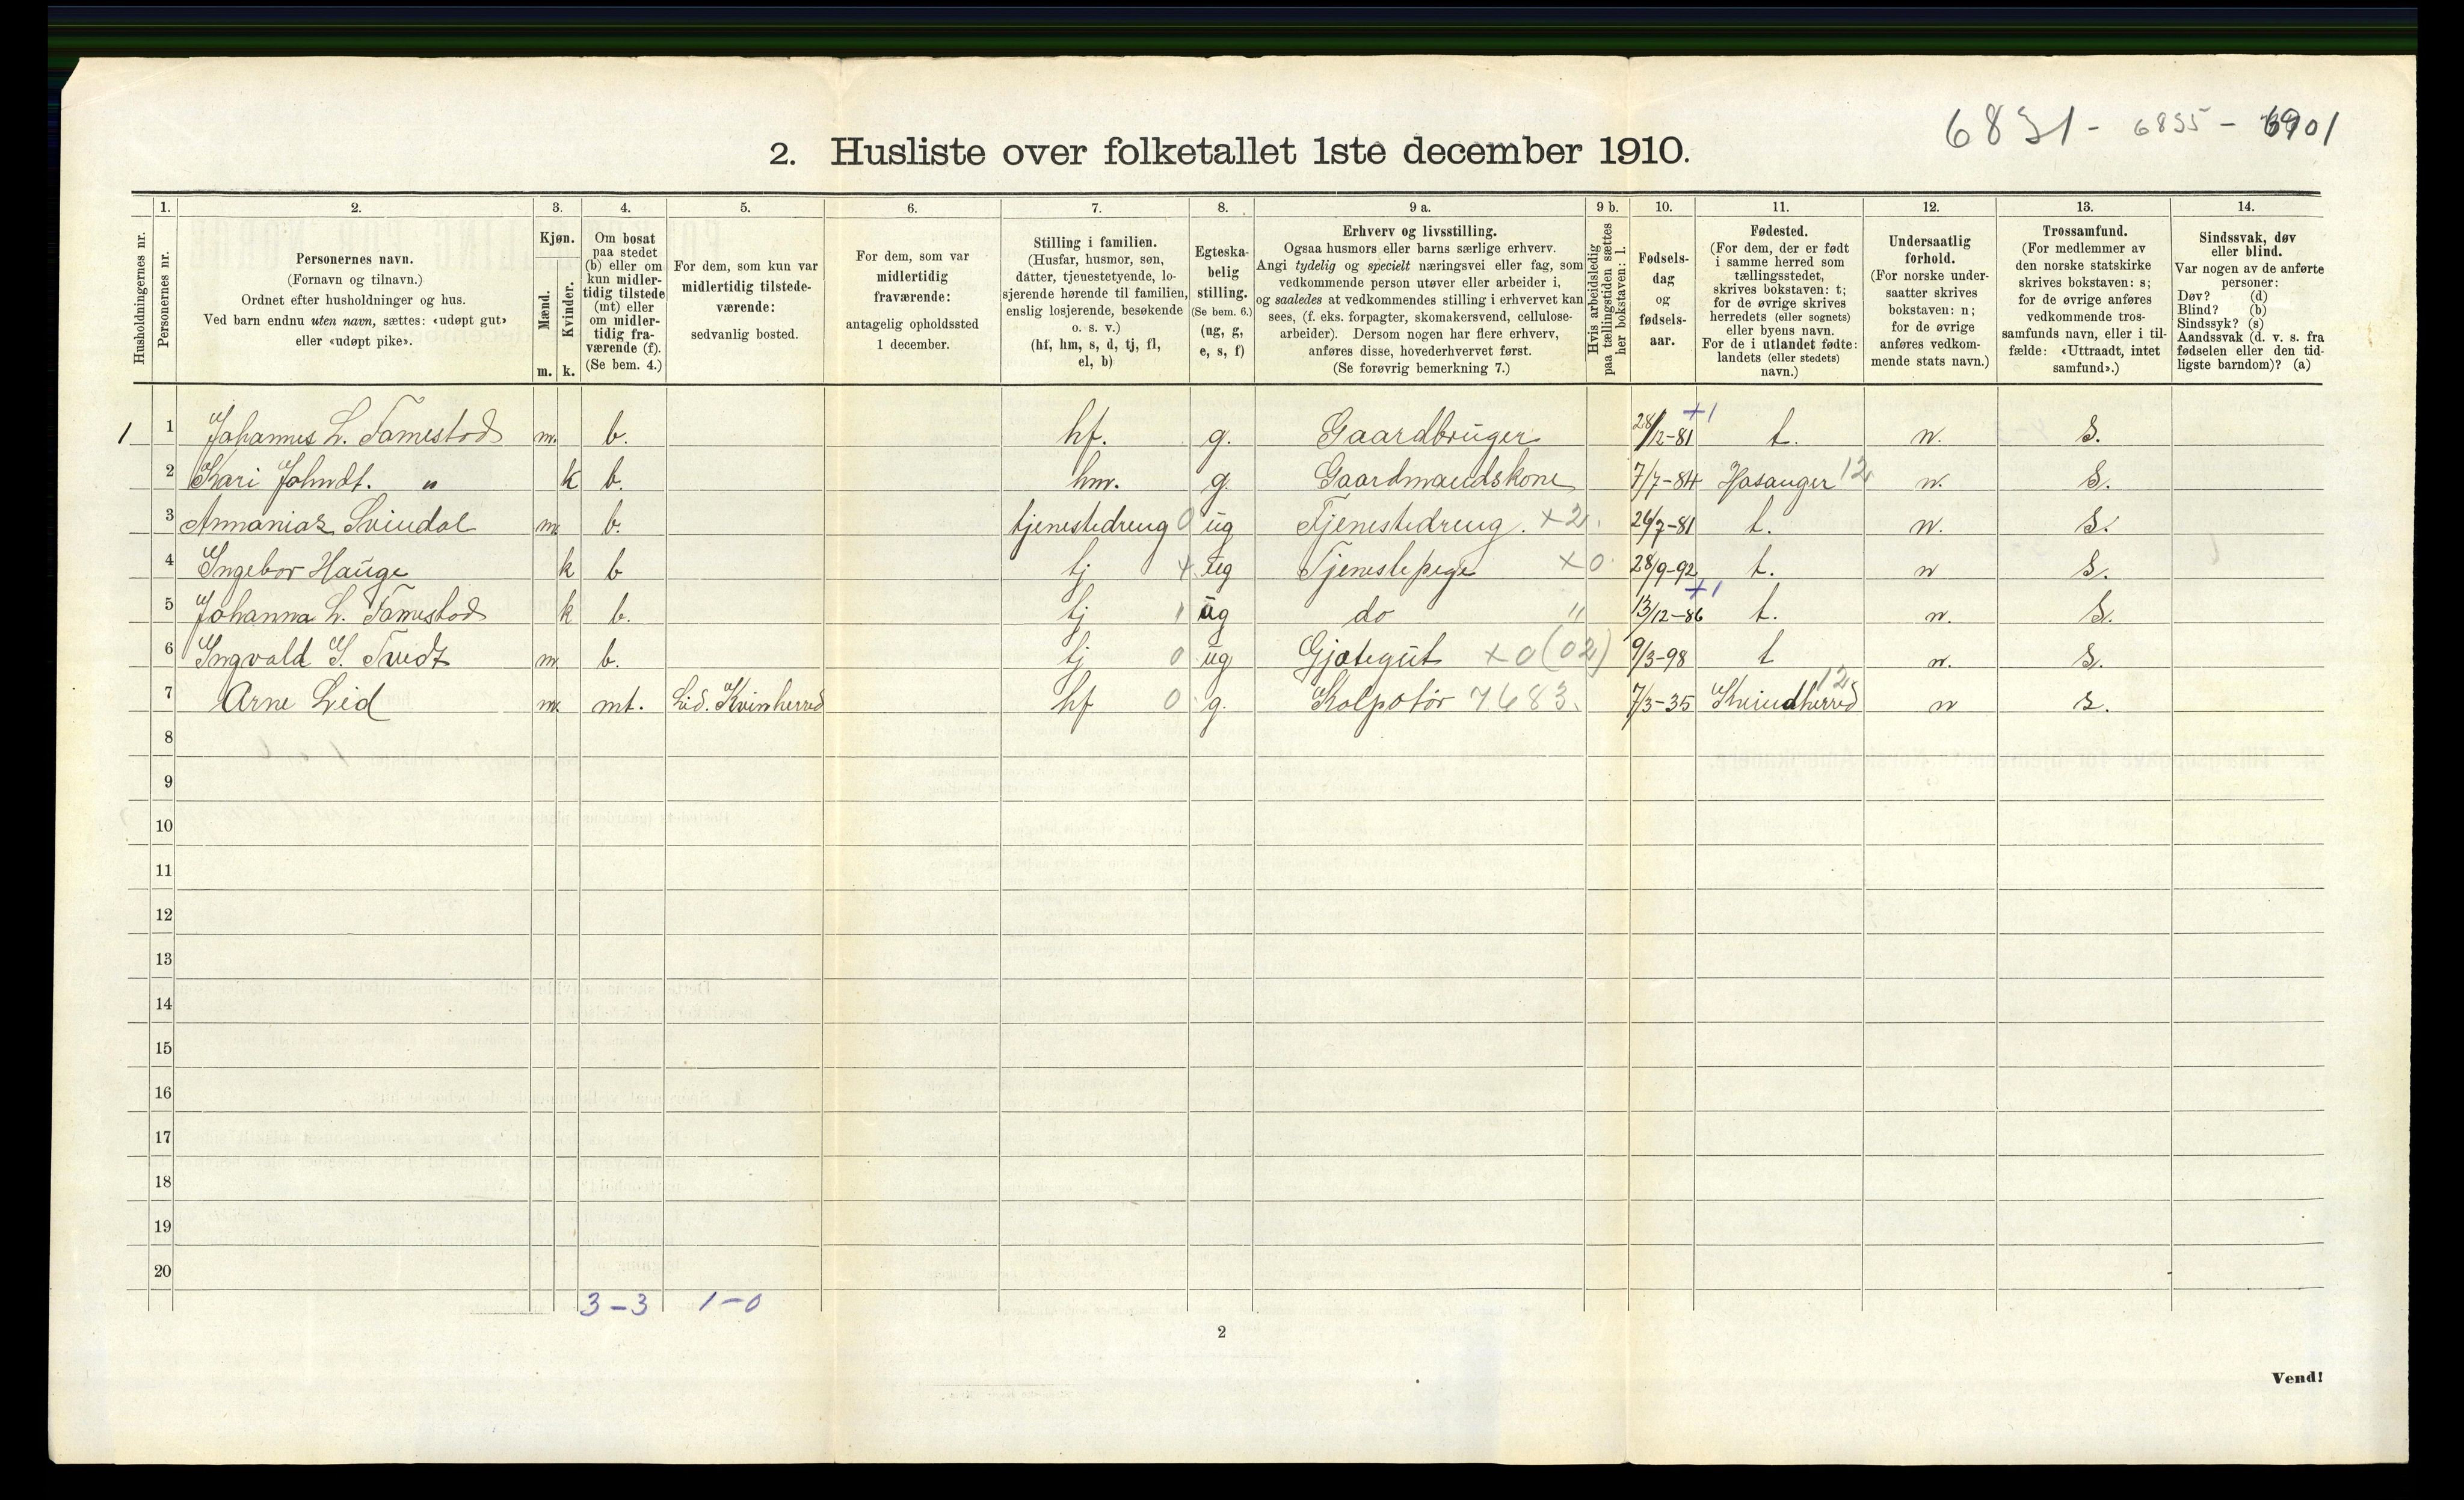 6831 - 6835 - 6901
2. Husliste over folketallet 1ste december 1910.
Husholdningernes nr.
1. Personernes nr.
2. Personernes navn.
(Fornavn og tilnavn.)
Ordnet efter husholdninger og hus.
Ved barn endnu uten navn, sættes: «udøpt gut»
eller «udøpt pike».
3. Kjøn.
Mænd. m.
Kvinder. k.
4. Om bosat
paa stedet
(b) eller om
kun midler-
tidig tilstede
(mt) eller
om midler-
tidig fra-
værende (f).
(Se bem. 4.)
5. For dem, som kun var
midlertidig tilstede-
værende:
sedvanlig bosted.
6. For dem, som var
midlertidig
fraværende:
antagelig opholdssted
1 december.
7. Stilling i familien.
(Husfar, husmor, søn,
datter, tjenestetyende, lo-
sjerende hørende til familien,
enslig losjerende, besøkende
o. s. v.)
(hf, hm, s, d, tj, fl,
el, b)
8. Egteska-
belig
stilling.
(Se bem. 6.)
(ug, g,
e, s, f)
9 a. Erhverv og livsstilling.
Ogsaa husmors eller barns særlige erhverv.
Angi tydelig og specielt næringsvei eller fag, som
vedkommende person utøver eller arbeider i,
og saaledes at vedkommendes stilling i erhvervet kan
sees, (f. eks. forpagter, skomakersvend, cellulose-
arbeider). Dersom nogen har flere erhverv,
anføres disse, hovederhvervet først.
(Se forøvrig bemerkning 7.)
9 b. Hvis arbeidsledig
paa tællingstiden sættes
her bokstaven: l.
10. Fødsels-
dag
og
fødsels-
aar.
11. Fødested.
(For dem, der er født
i samme herred som
tællingsstedet,
skrives bokstaven: t;
for de øvrige skrives
herredets (eller sognets)
eller byens navn.
For de i utlandet fødte:
landets (eller stedets)
navn.)
12. Undersaatlig
forhold.
(For norske under-
saatter skrives
bokstaven: n;
for de øvrige
anføres vedkom-
mende stats navn.)
13. Trossamfund.
(For medlemmer av
den norske statskirke
skrives bokstaven: s;
for de øvrige anføres
vedkommende tros-
samfunds navn, eller i til-
fælde: «Uttraadt, intet
samfund».)
14. Sindssvak, døv
eller blind.
Var nogen av de anførte
personer:
Døv? (d)
Blind? (b)
Sindssyk? (s)
Aandssvak (d. v. s. fra
fødselen eller den tid-
ligste barndom)? (a)
1 1 Johannes L. Tamestod m. b. hf. g. Gaardbruger 28/12-81 +1 t. n. s.
2 Kari Johndt. " k b. hm. g. Gaardmandskone 7/7-84 Hosanger 12 n. s.
3 Annanias Svindal m. b. tjenestedreng 0 ug Tjenestedreng. x 2. 26/7-81 t. n. s.
4 Ingebor Hauge k b tj x ug Tjenestepige x 0 28/9-92 t. n s.
5 Johanna L. Tamestod k b. tj 1 ug do " 13/12-86 +1 t. n. s.
6 Ingvald S. Tvedt m. b. tj 0 ug Gjætegut x 0 (02) 9/3-98 t n. s.
7 Arne Lid m. mt. Lid. Kvinherred hf 0 g. Kolpotør 7683. 7/3-35 Kvindherred 12 n s.
8
9
10
11
12
13
14
15
16
17
18
19
20
3-3 1-0
2
Vend!